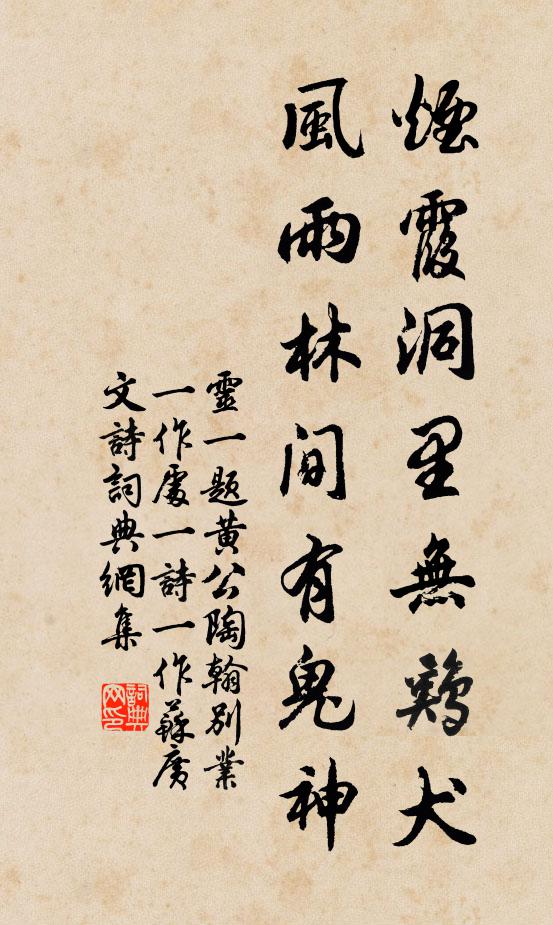 煙霞洞里無鷄犬
風雨林間有鬼神
靈一題黃公陶翰別業
一作處一詩一作蘇廣
文詩詞典網集
詞典網印